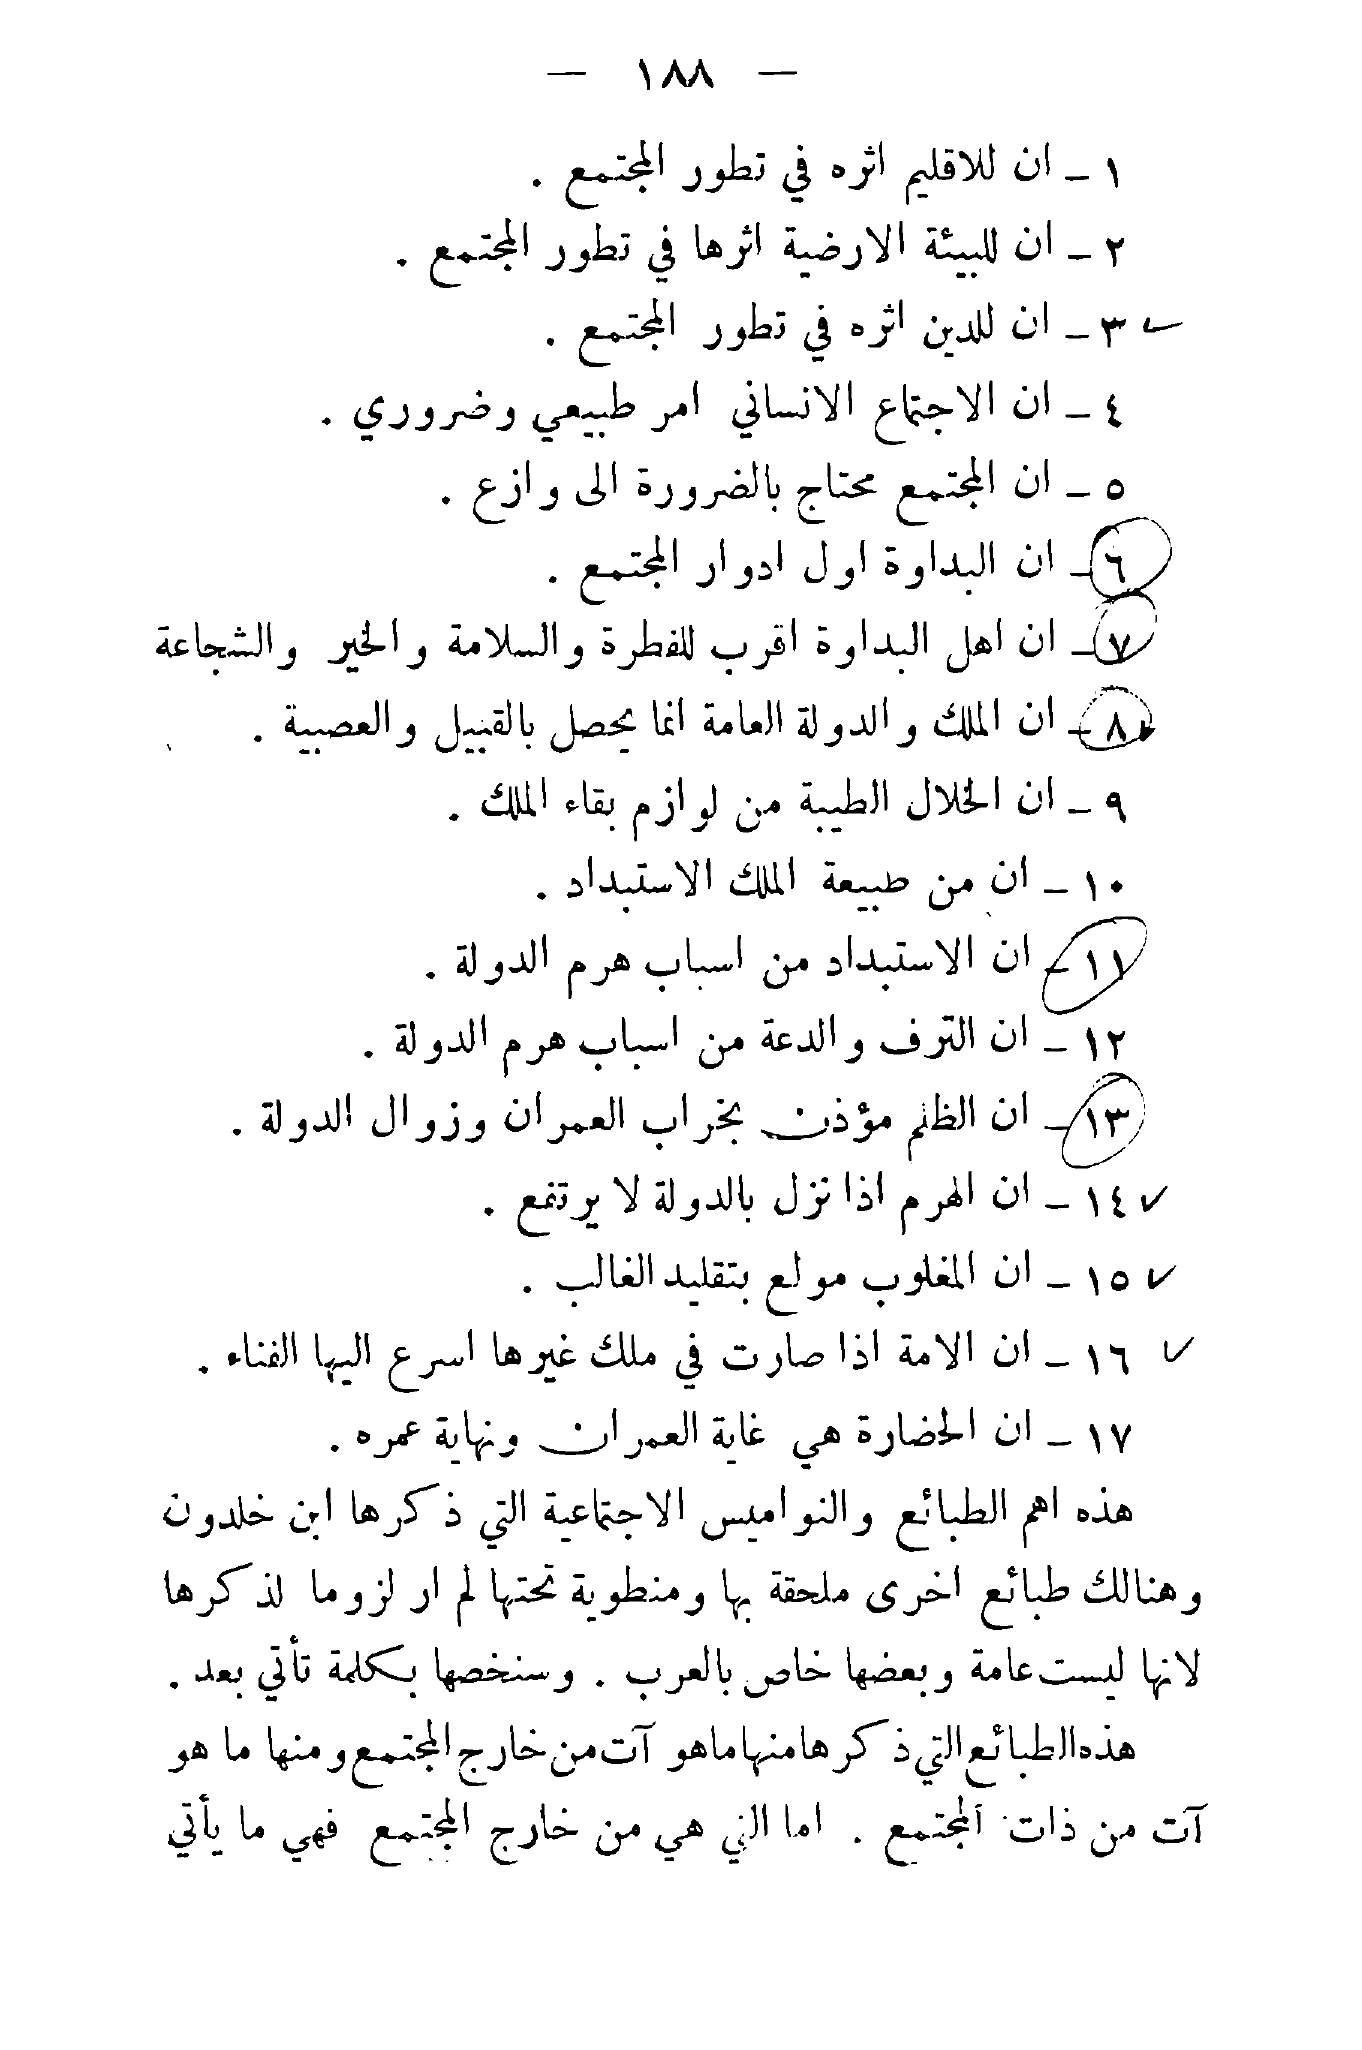 — ١٨٨ —
١ – ان للاقليم اثره في تطور المجتمع .
٢ – ان للبيئة الارضية اثرها في تطور المجتمع .
٣ – ان للدين اثره في تطور المجتمع .
٤ – ان الاجتماع الانساني امر طبيعي وضروري .
٥ – ان المجتمع محتاج بالضرورة الى وازع .
٦ – ان البداوة اول ادوار المجتمع .
٧ – ان اهل البداوة اقرب للفطرة والسلامة والخير والشجاعة
٨ – ان الملك والدولة العامة انما يحصل بالقبيل والعصبية .
٩ – ان الخلال الطيبة من لوازم بقاء الملك .
١٠ – ان من طبيعة الملك الاستبداد .
١١ – ان الاستبداد من اسباب هرم الدولة .
١٢ – ان الترف والدعة من اسباب هرم الدولة .
١٣ – ان الظلم مؤذن بخراب العمران وزوال الدولة .
١٤ – ان الهرم اذا نزل بالدولة لا يرتفع .
١٥ – ان المغلوب مولع بتقليد الغالب .
١٦ – ان الامة اذا صارت في ملك غيرها اسرع اليها الفناء .
١٧ – ان الحضارة هي غاية العمران ونهاية عمره .
هذه اهم الطبائع والنواميس الاجتماعية التي ذكرها ابن خلدون
وهنالك طبائع اخرى ملحقة بها ومنطوية تحتها لم ار لزوما لذكرها
لانها ليست عامة وبعضها خاص بالعرب . وسنخصها بكلمة تأتي بعد .
هذه الطبائع التي ذكرها منها ما هو آت من خارج المجتمع ومنها ما هو
آت من ذات المجتمع . اما التي هي من خارج المجتمع فهي ما يأتي